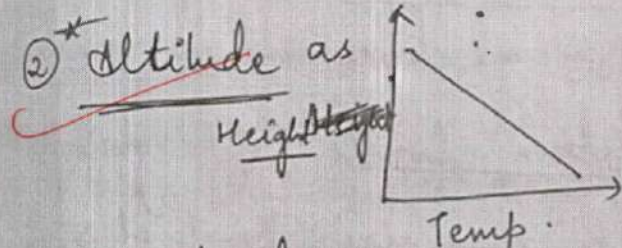 ② * Altitude as
Height
Temp.